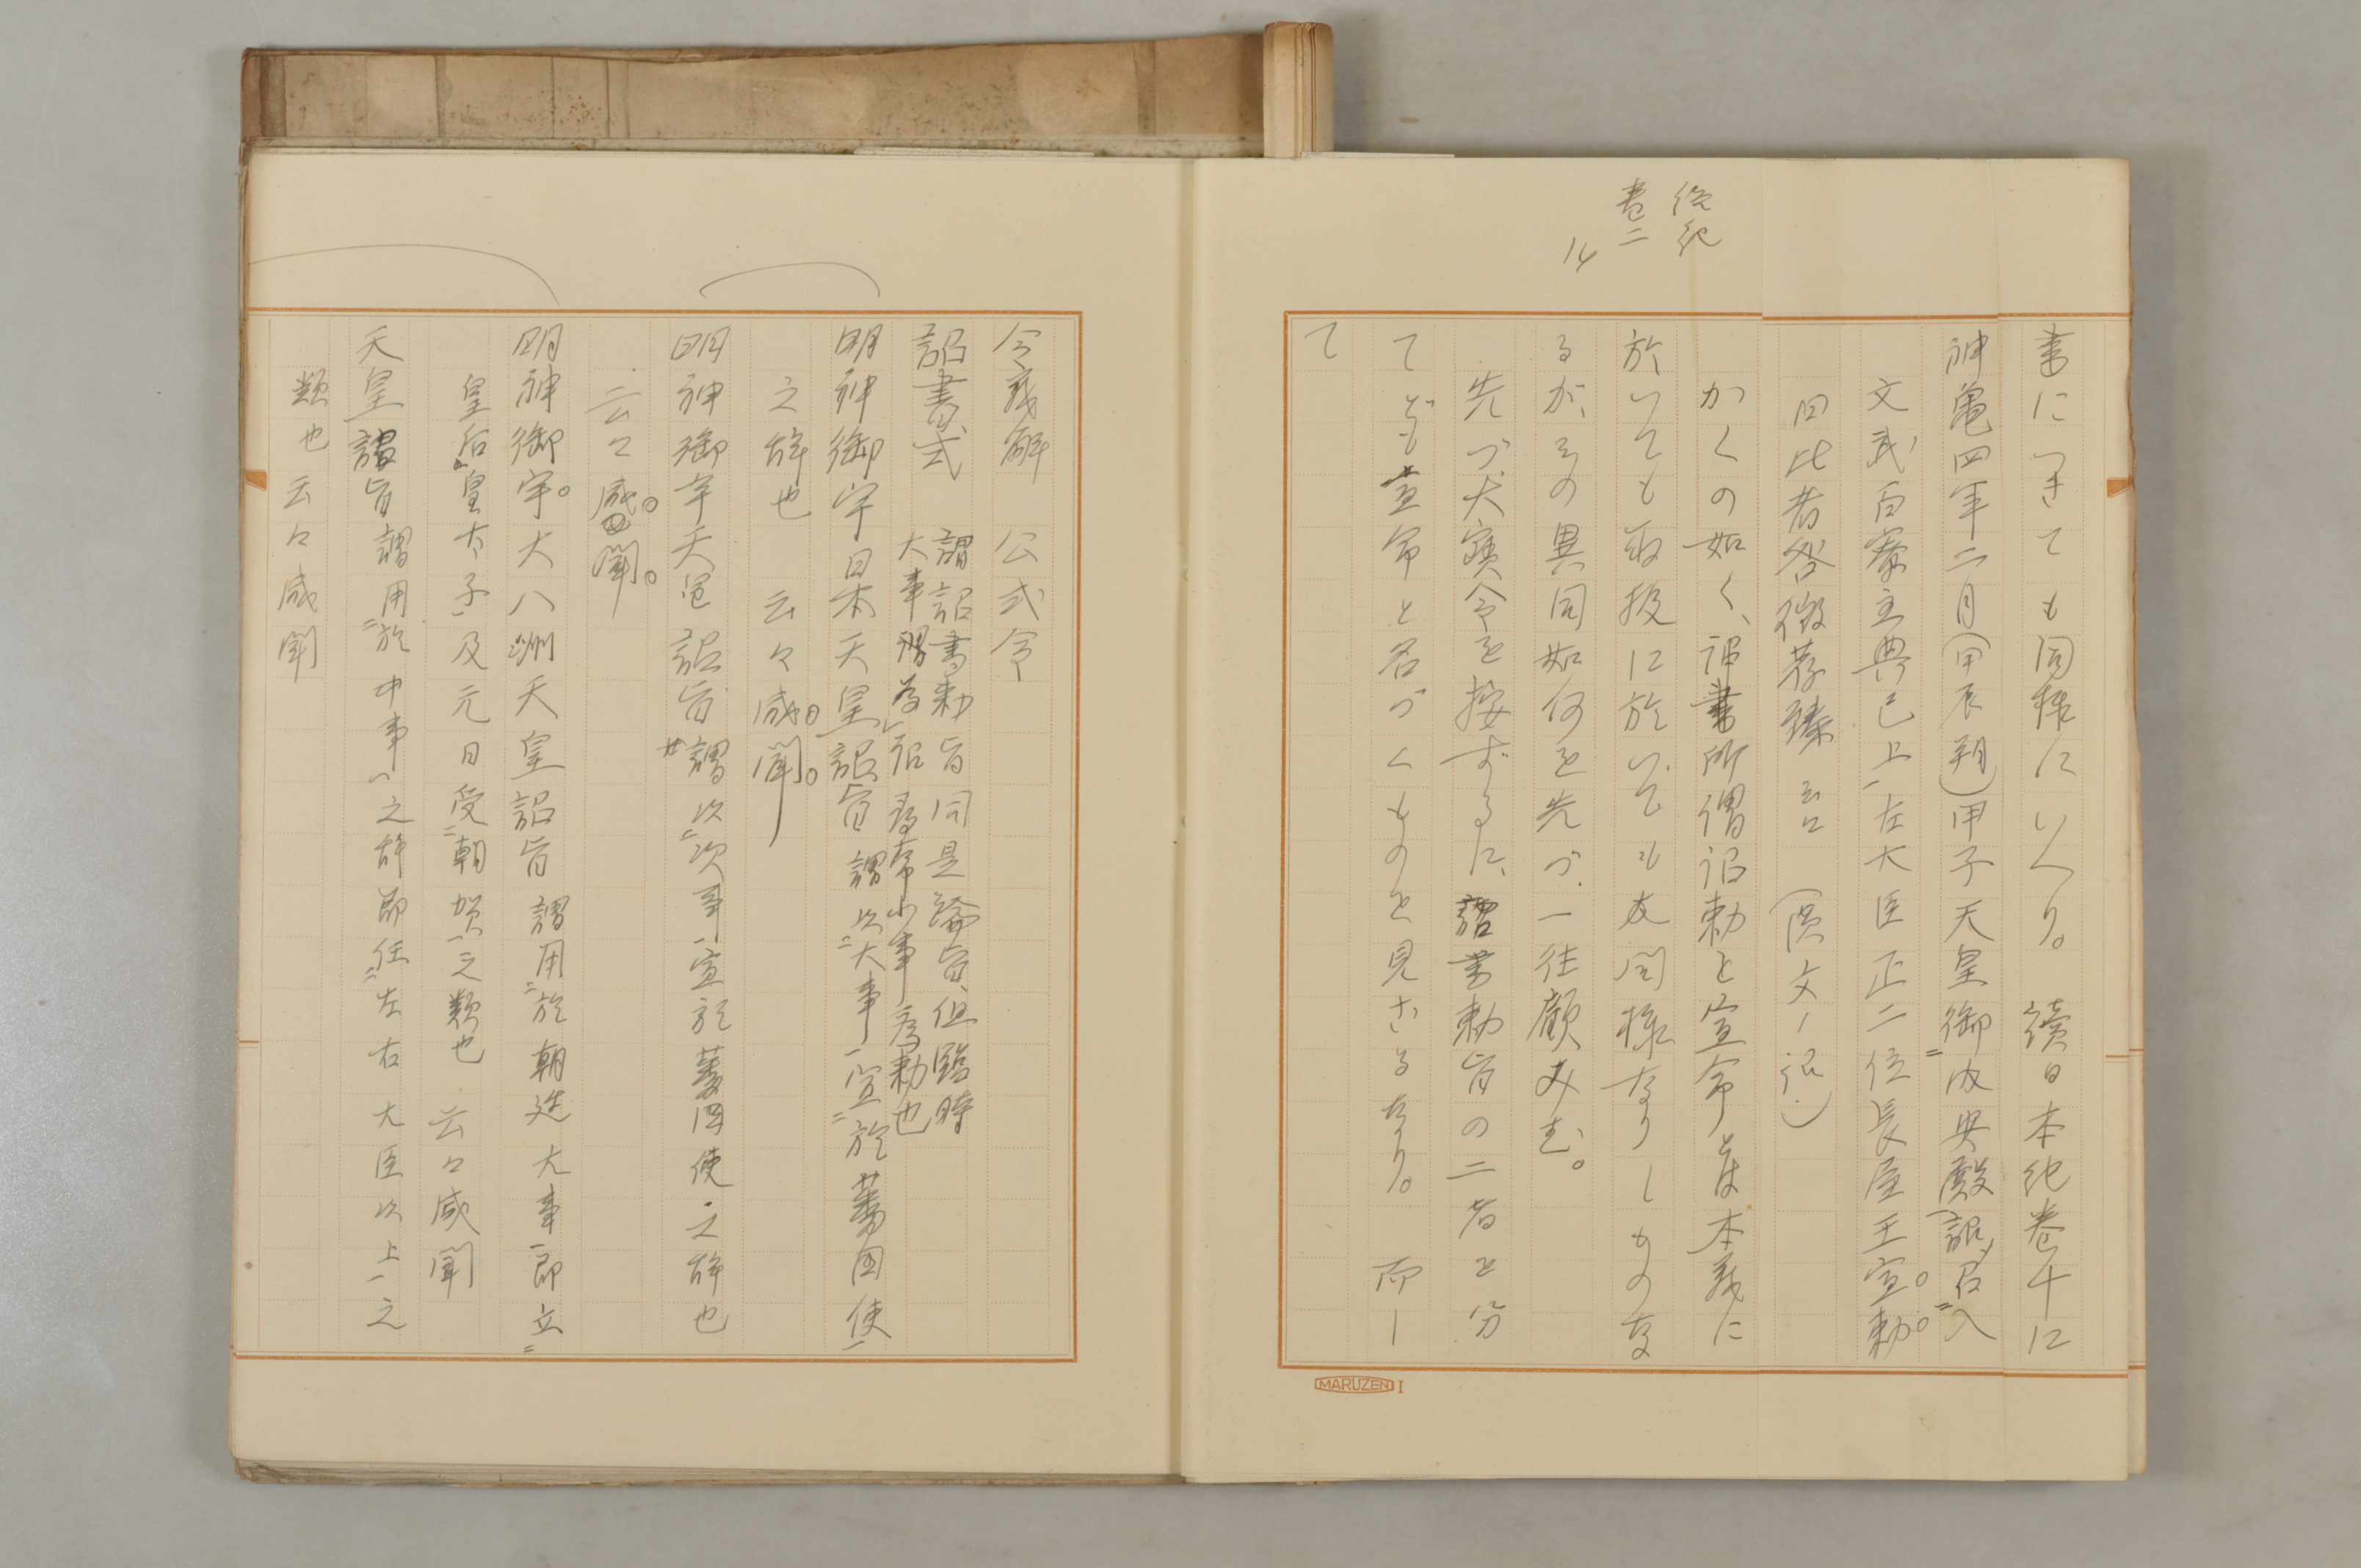 続紀
巻二
14
書につきても同様にいへり。 續日本紀巻十に
神亀四年二月(甲辰朔)甲子天皇御内安殿詔召入
文武百寮主典已上左大臣正二位長屋王宣勅。
曰比者咎徴荐臻 云々 (漢文ノ詔)
かくの如く、詔書所謂詔勅と宣命とは本義に
於いても取扱に於いても大同様なりしものな
るが、その異同如何を先づ、一往顧みむ。
先づ大寳令を按ずるに、詔書勅旨の二者を分
てども宣命と名づくものを見ざるなり。 而し
て
MARUZEN I
令義解 公式令
詔書式 謂詔書勅旨同是綸旨、但臨時
大事為詔 尋常小事為勅也
明神御宇日本天皇詔旨 謂以大事宣於蕃国使
之辞也 云々咸聞。
明神御宇天皇詔旨 謂以次事宣於蕃国使之辞也
云々咸聞。
明神御宇。大八洲天皇詔旨 謂用於朝廷大事即立
皇后皇太子及元日受朝賀之類也 云々咸聞
天皇詔旨 謂用於中事之辞即任左右大臣以上之
類也 云々咸聞